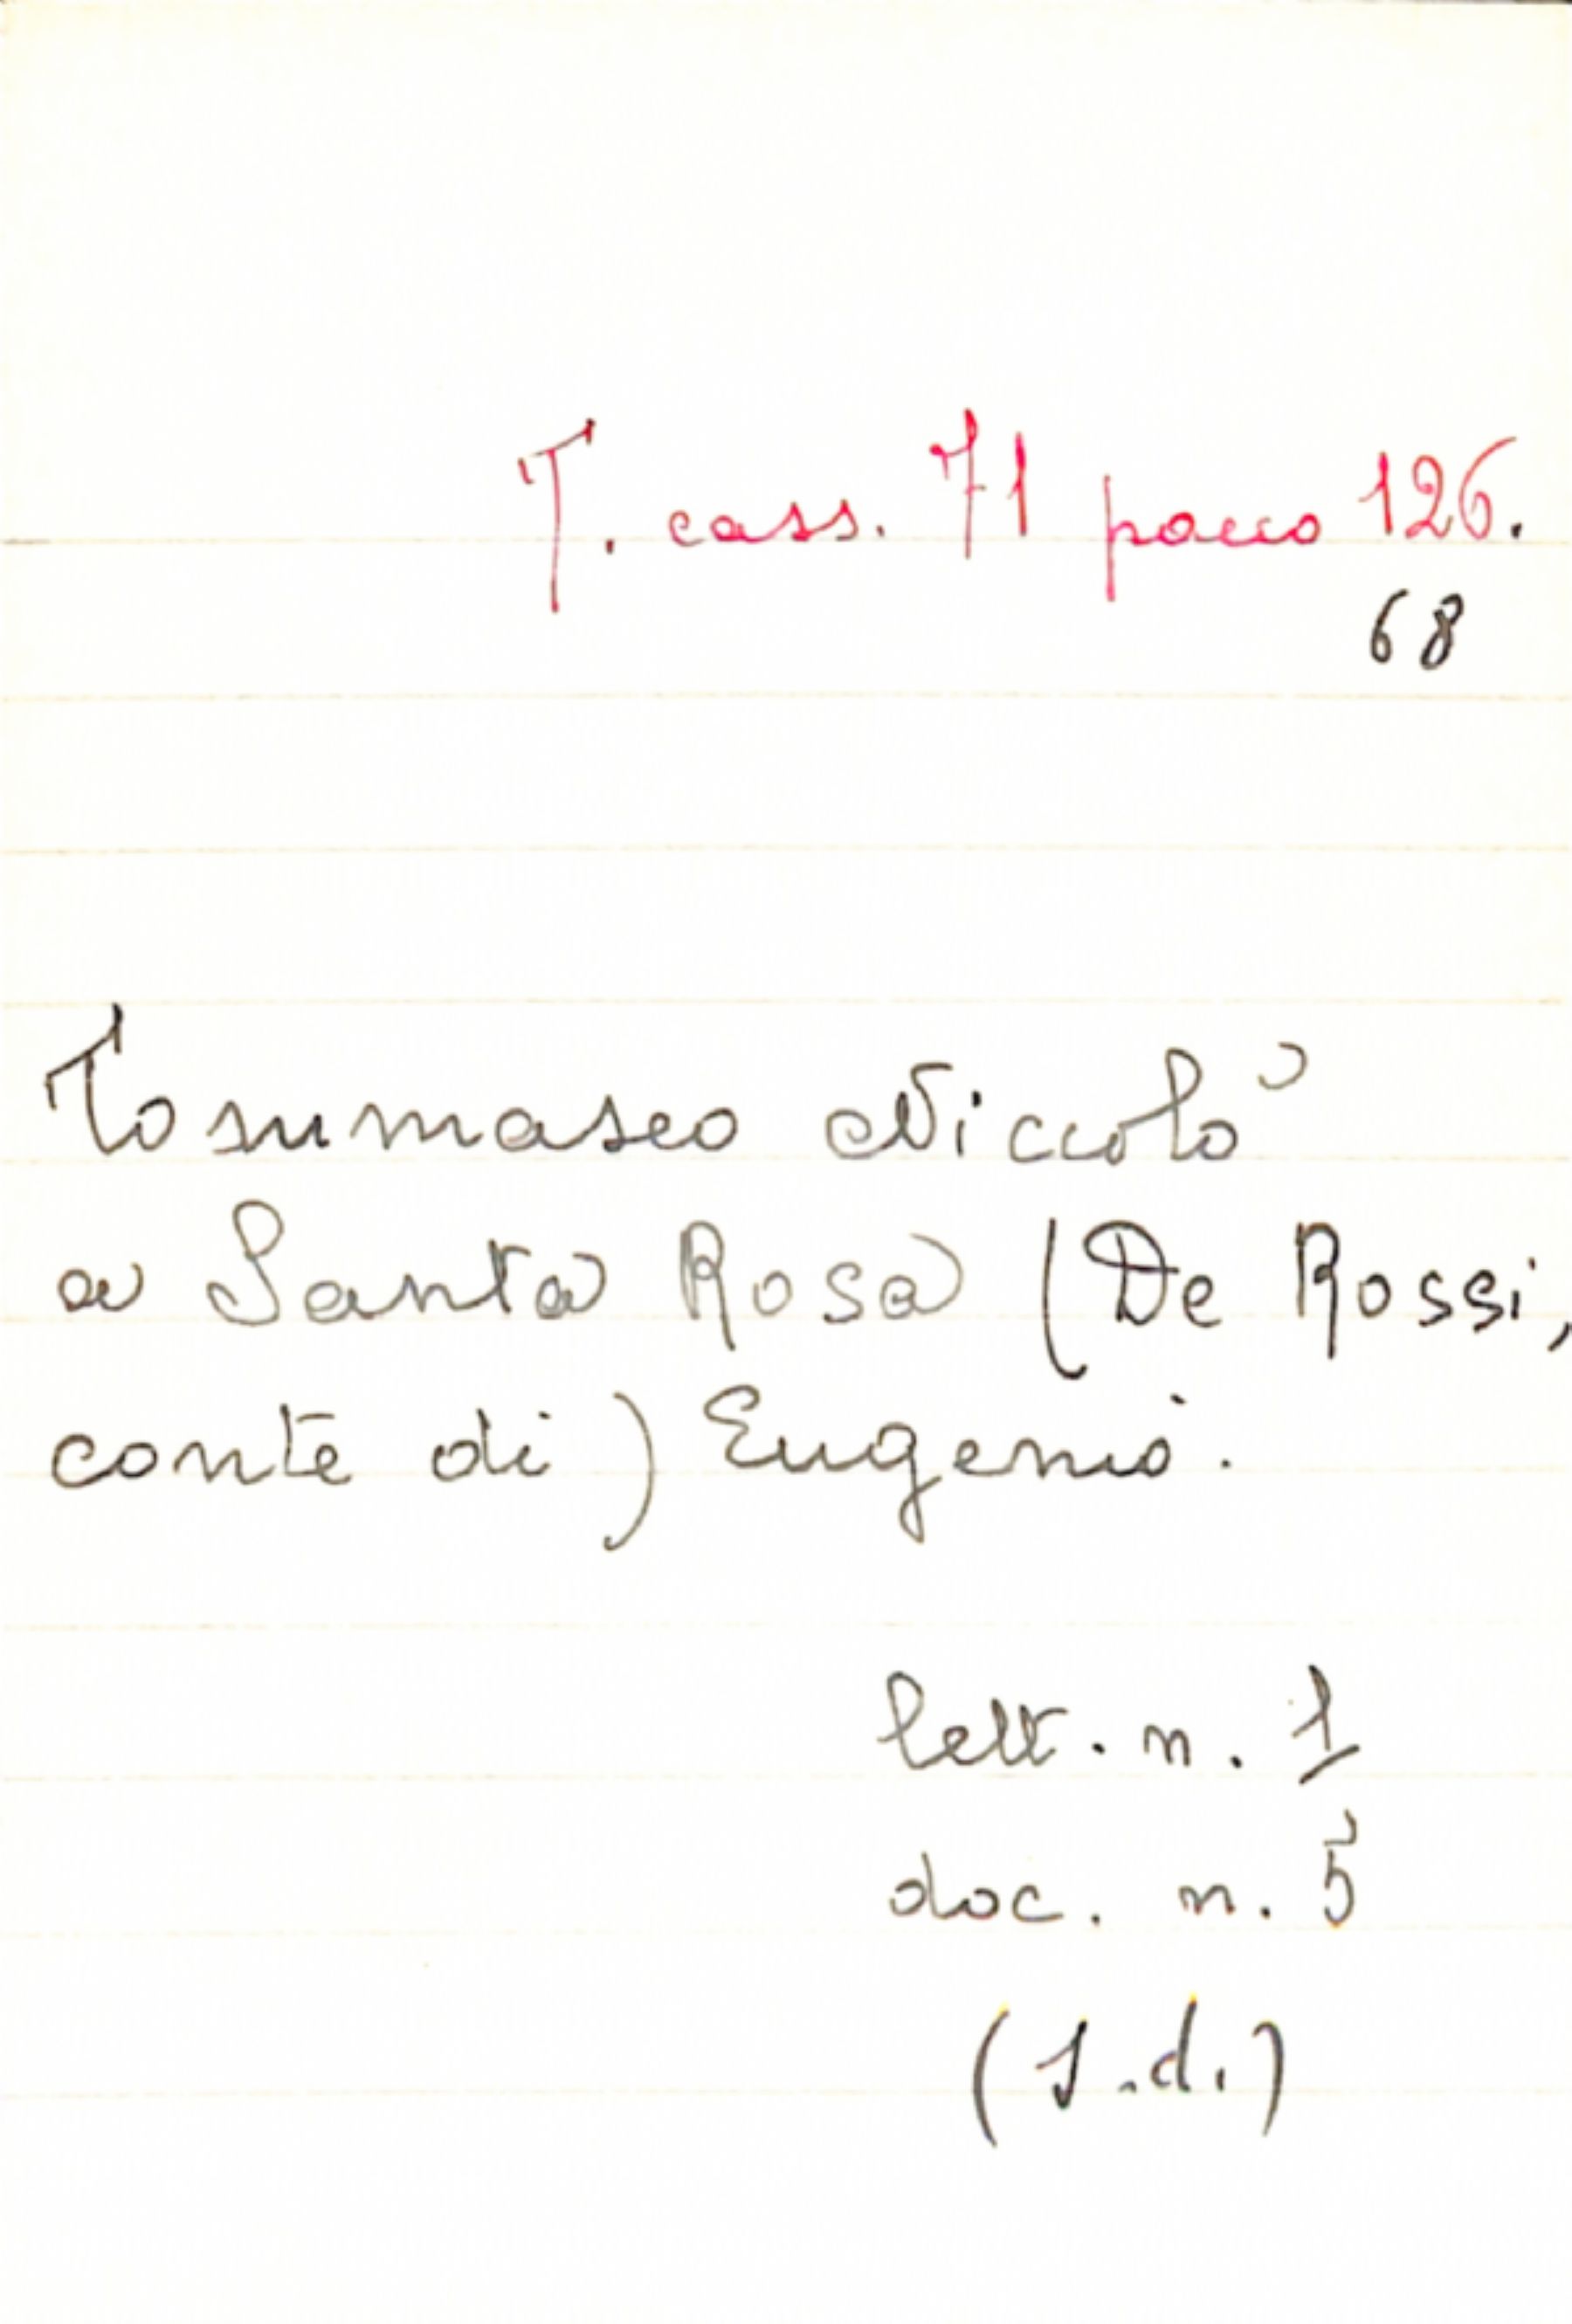 T. cass. 71 pacco 126.
68
Tommaseo Niccolò
a Santa Rosa (De Rossi,
conte di) Eugenio.
lett. n. 1
doc. n. 5
(s.d.)